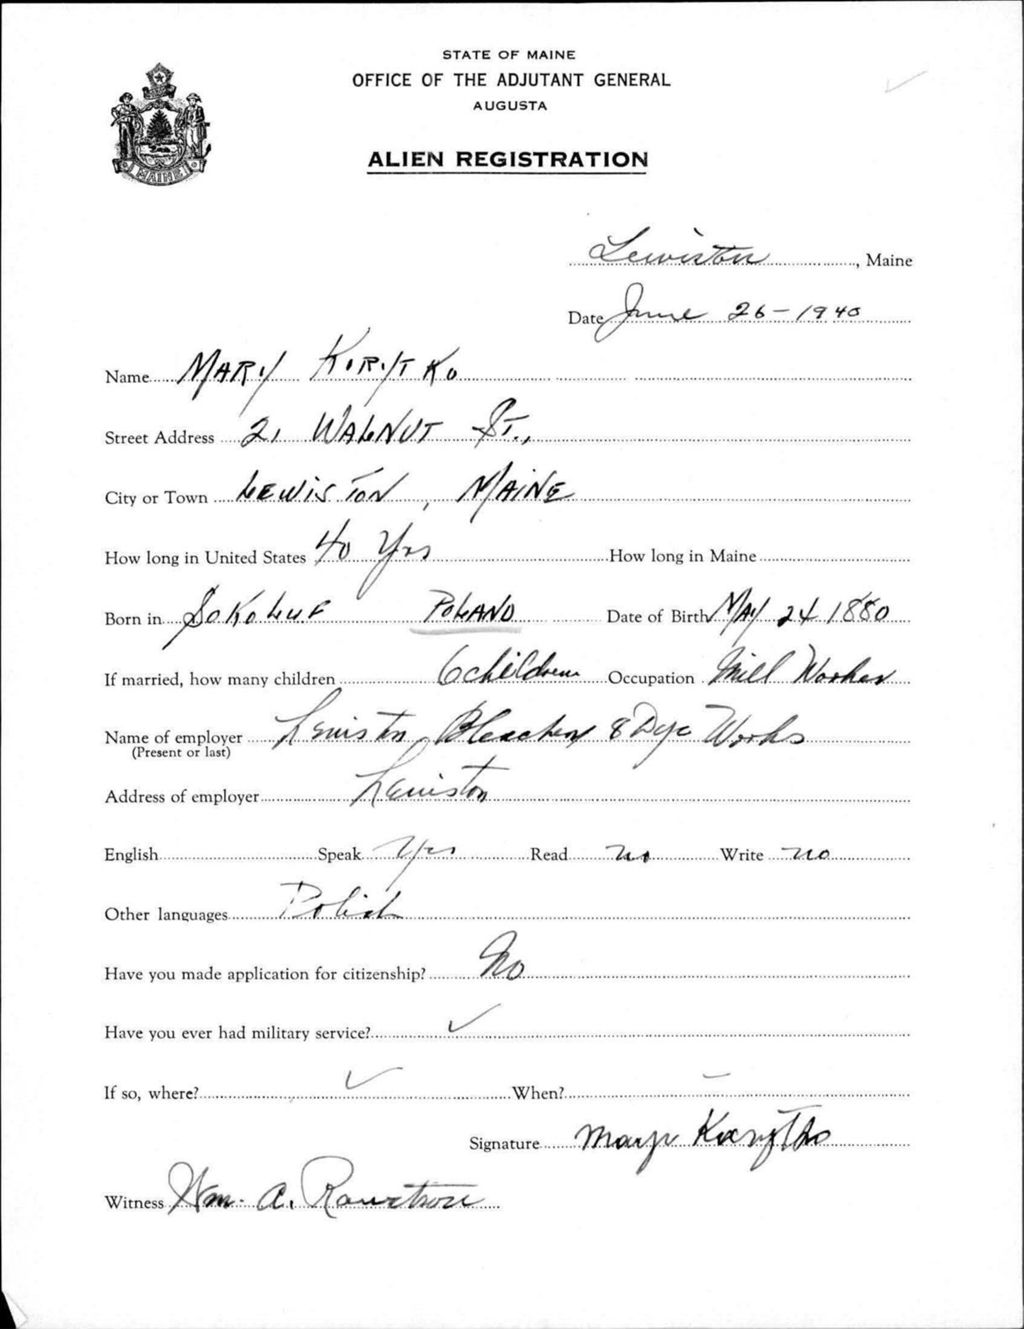 STATE OF MAINE
OFFICE OF THE ADJUTANT GENERAL
AUGUSTA
ALIEN REGISTRATION
MAINE
Lewiston, Maine
Date June 26-1940
Name MARY KIRYTKO
Street Address 21 WALNUT ST.,
City or Town LEWISTON, MAINE
How long in United States 40 Yrs How long in Maine
Born in POLAND Date of Birth MAY 24 1880
If married, how many children 6 children Occupation Mill Worker
Name of employer Lewiston Bleachery & Dye Works
(Present or last)
Address of employer Lewiston
English Speak Yes Read no Write no
Other languages Polish
Have you made application for citizenship? No
Have you ever had military service? ✓
If so, where? ✓ When? –
Signature Mary
Witness Wm. A.